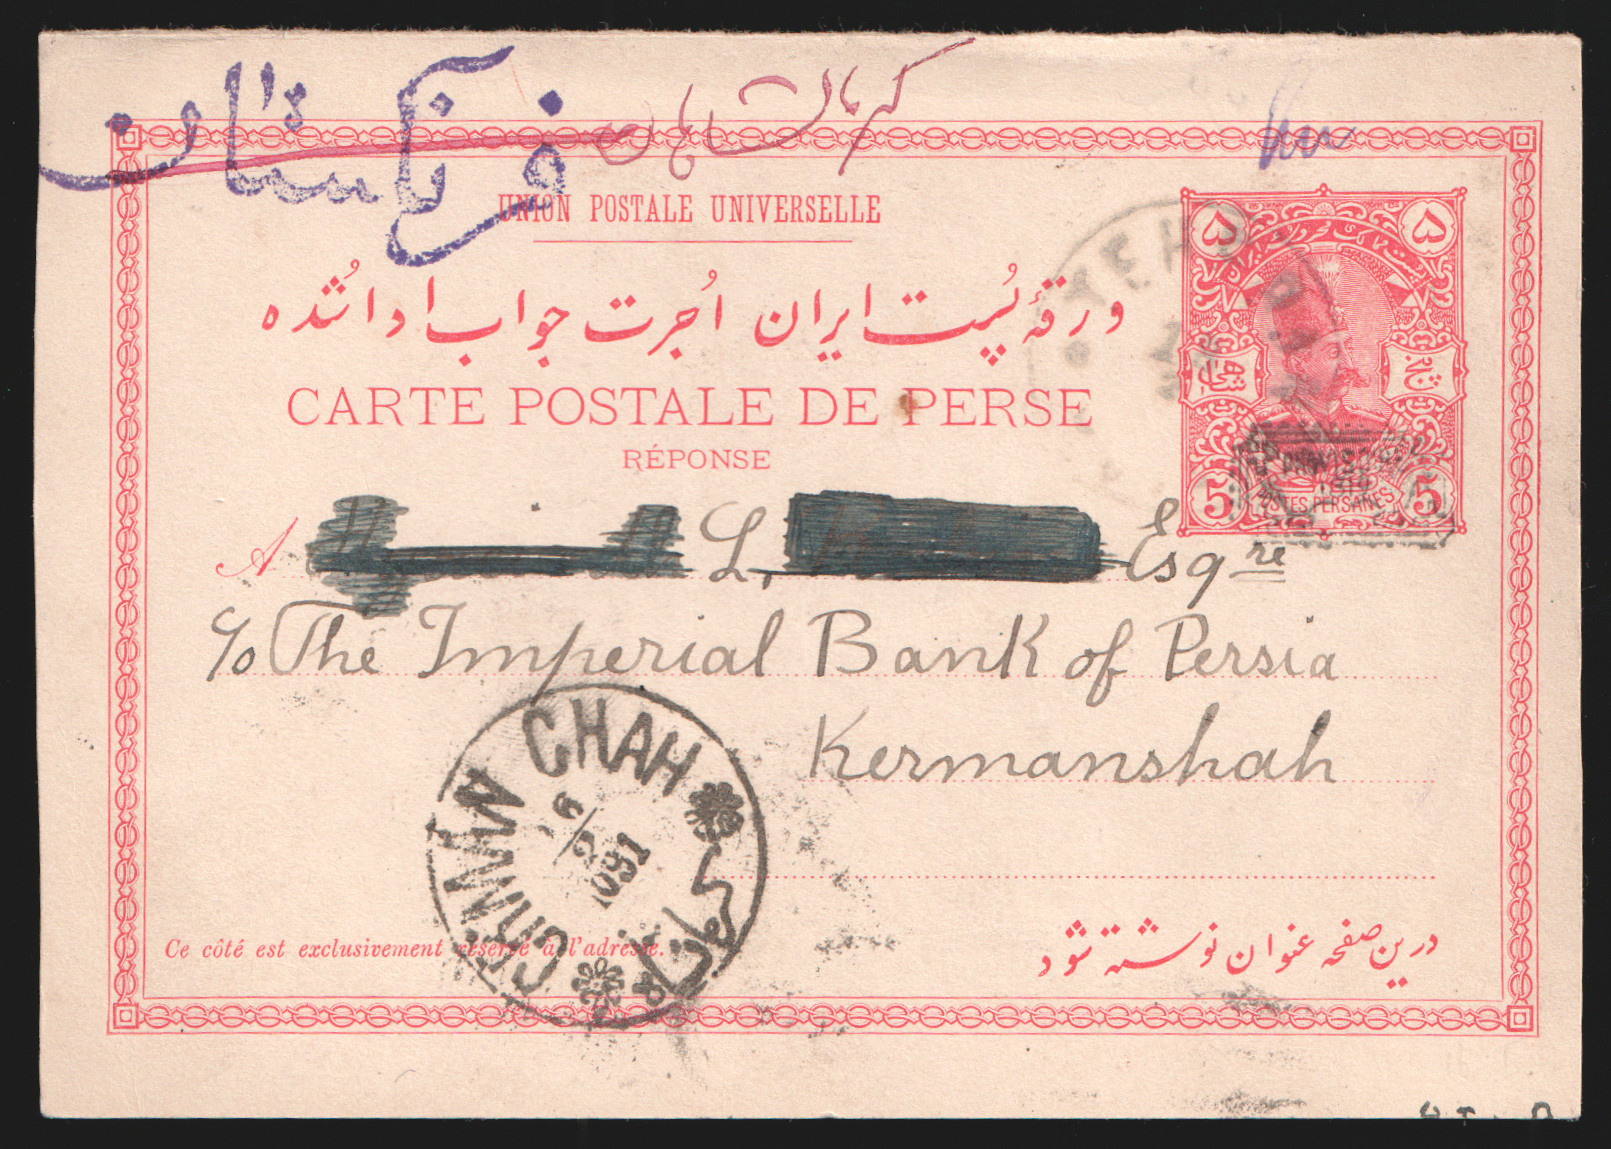 فرنگستان
کرمانشاهان
UNION POSTALE UNIVERSELLE
ورقهٔ پُست ایران اُجرت جواب ادا شُده
CARTE POSTALE DE PERSE
RÉPONSE
۵ ۵
5 POSTES PERSANES 5
A L. Esqre
c/o The Imperial Bank of Persia
Kermanshah
CHAH
6/2
کرمانشاه
Ce côté est exclusivement réservé à l'adresse.
درین صفحه عنوان نوشته شود